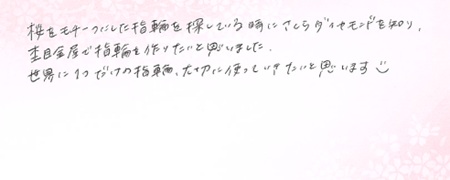 桜をモチーフにした指輪を探している時にさくらダイヤモンドを知り、
杢目金屋で指輪を作りたいと思いました。
世界に1つだけの指輪、大切に使っていきたいと思います